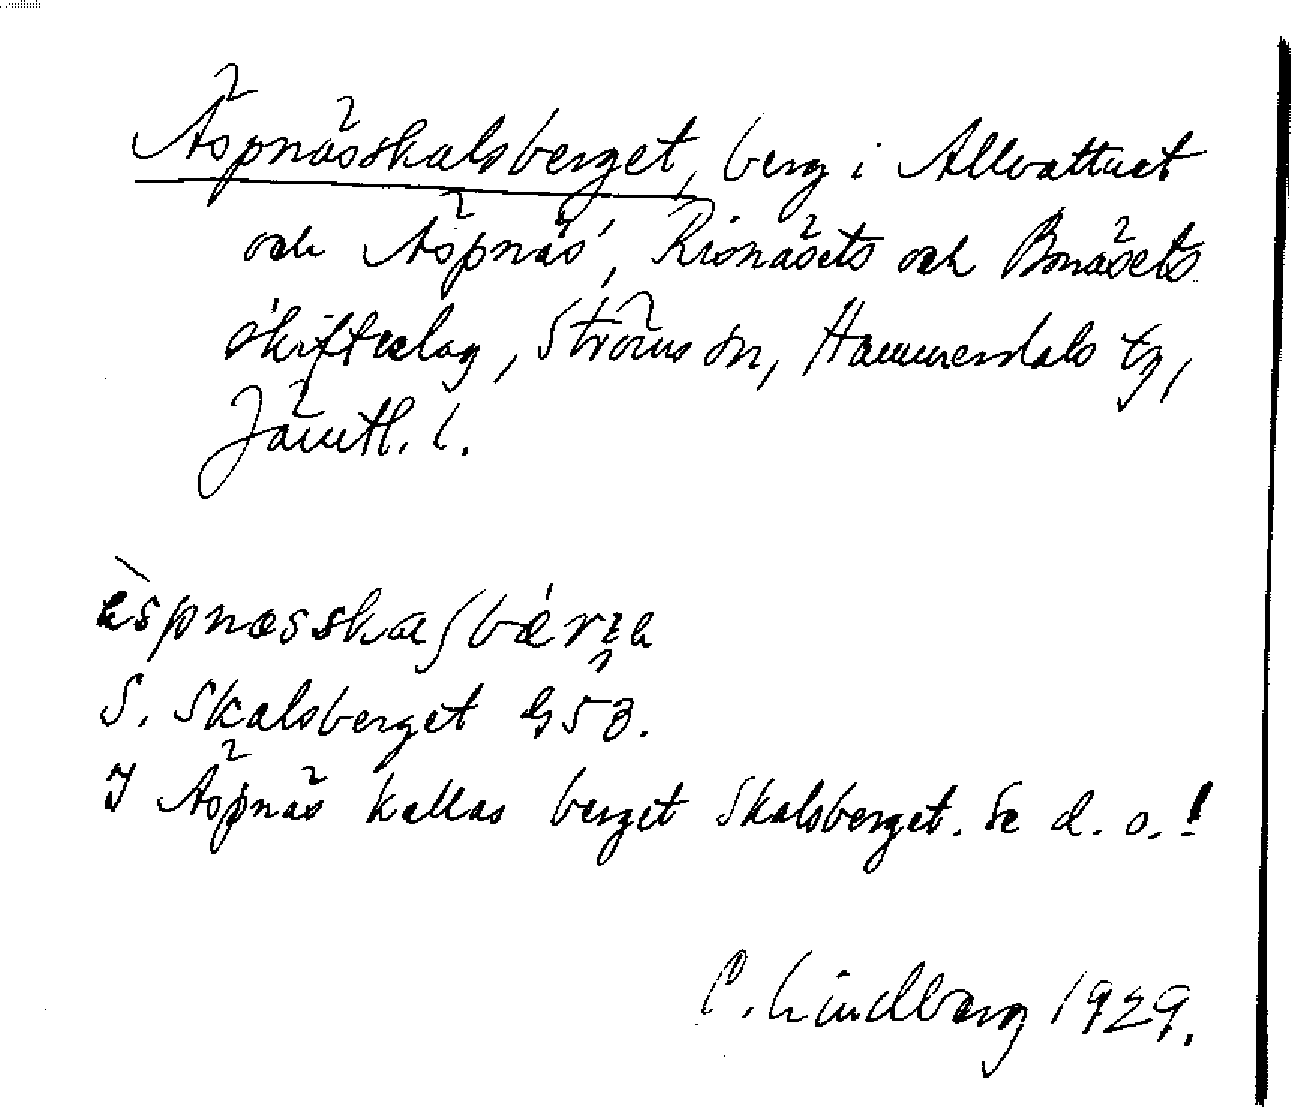 Äspnässkalsberget, berg i Allvattnet
och Äspnäs, Risnäsets och Bonäsets
skifteslag, Ströms sn, Hammerdals tg,
Jämtl. l.
S. Skalsberget G5B.
I Äspnäs kallas berget Skalsberget. Se d. o.!
C. Lindberg 1929.